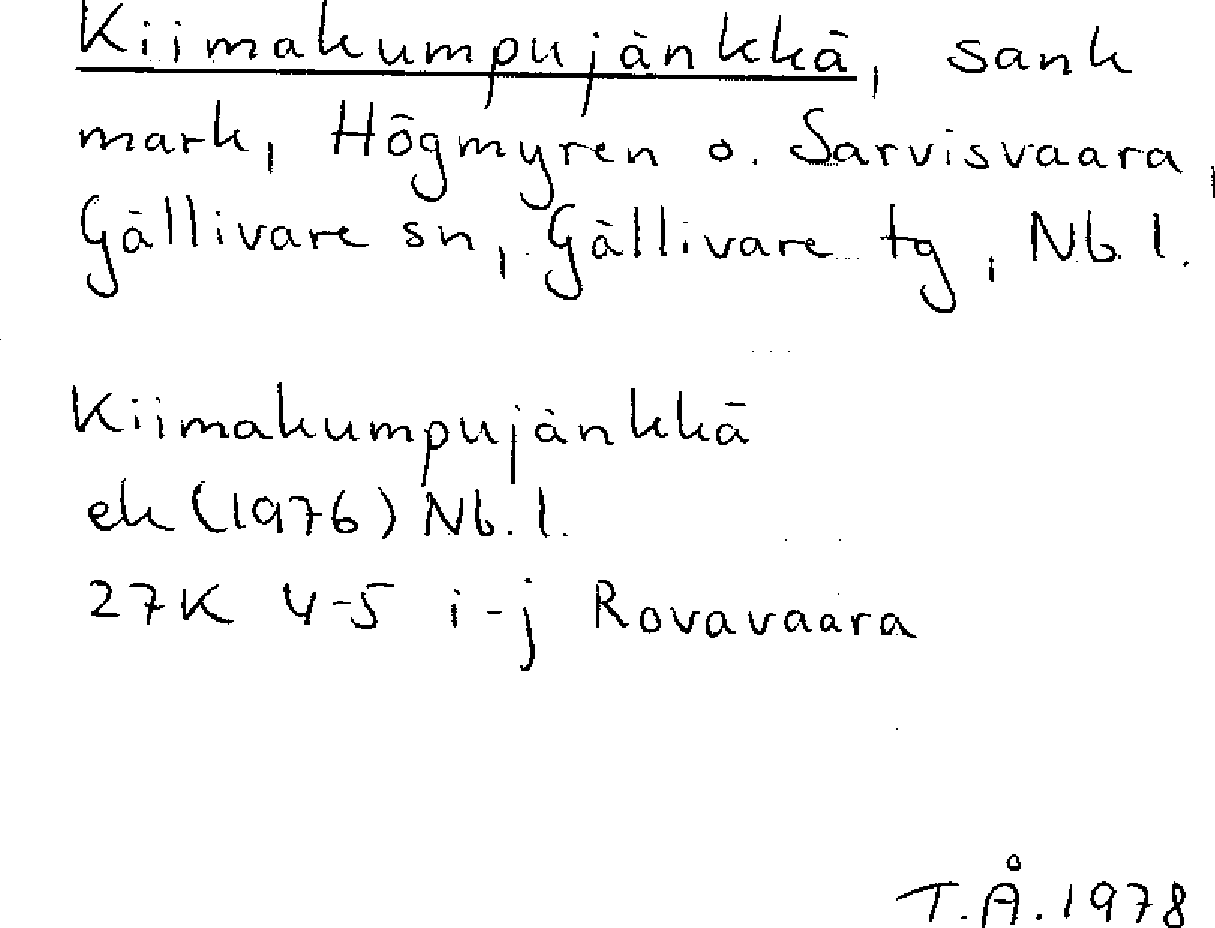 Kiimakumpujänkkä, sank
mark, Högmyren o. Sarvisvaara,
Gällivare sn, Gällivare tg, Nb. l.
Kiimakumpujänkkä
ek (1976) Nb. l.
27K 4-5 i-j Rovavaara
T.Å. 1978